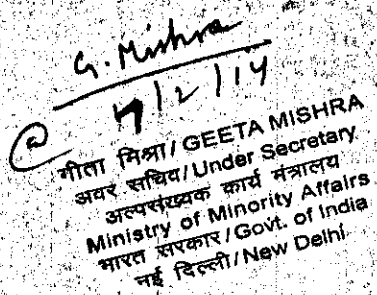 G. Mishra
@ 7/2/14
गीता मिश्रा/GEETA MISHRA
अवर सचिव/Under Secretary
अल्पसंख्यक कार्य मंत्रालय
Ministry of Minority Affairs
भारत सरकार/Govt. of India
नई दिल्ली/New Delhi